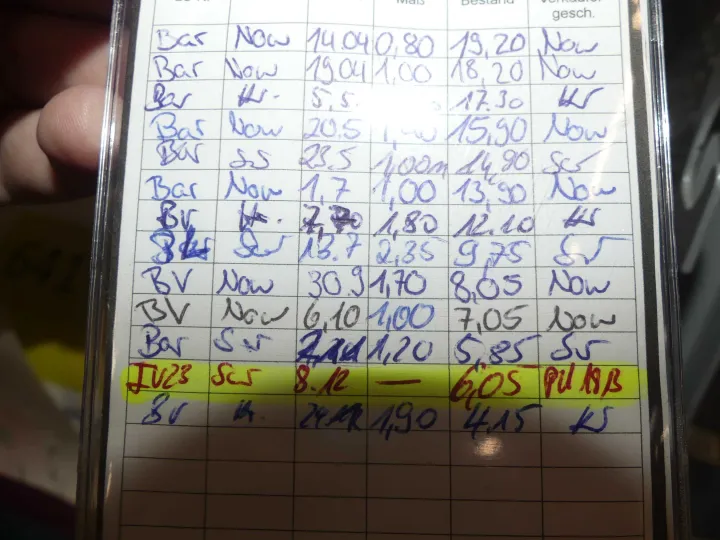 Maß Bestand Verkäufer
gesch.
Bar Now 14.04 0,80 19,20 Now
Bar Now 19.04 1,00 18,20 Now
Bar Kr. 5.5. 17.30 Kr
Bar Now 20.5 15,90 Now
Bar Ser 23.5 1,00m 14,90 Ser
Bar Now 1.7 1,00 13,90 Now
BV Kr. 1,80 12.10 Kr
Ser 13.7 2,35 9,75 Sr
BV Now 30.9 1,70 8,05 Now
BV Now 6,10 1,00 7,05 Now
Bar Sr 1,20 5,85 Sr
IV23 Ser 8.12 — 6,05
BV Kr. 1,90 4.15 Kr